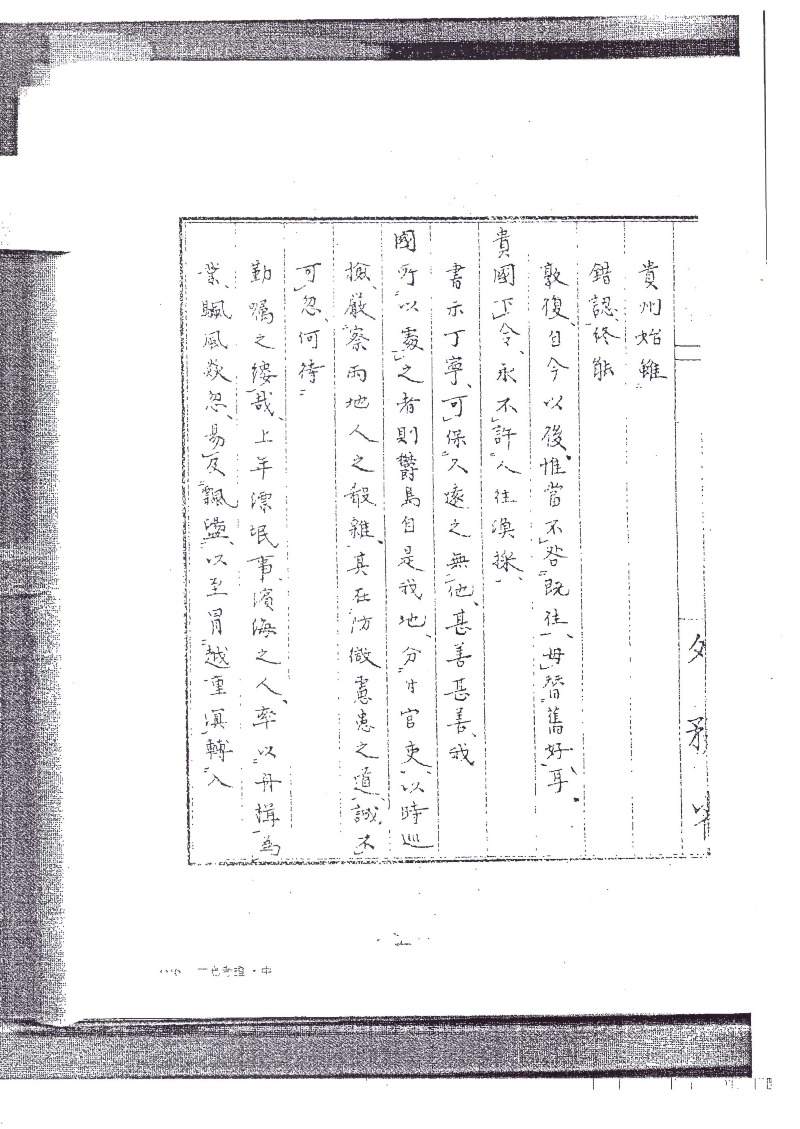 貴州始雖
錯認、終能
敦復、自今以後、惟當不咎既往、毋替舊好耳、
貴國下令、永不許人往漁採、
書示丁寧、可保久遠之無他、甚善甚善、我
國所以憂之者則欝島自是我地、分付官吏、以時巡
檢、厳察両地人之殽雜、其在防微慮患之道、誠不
可忽、何待
勤嘱之縷哉、上年漂氓事、濱海之人、率以舟楫為
業、颿風焱忽、易及飄盪、以至冒越重溟轉入